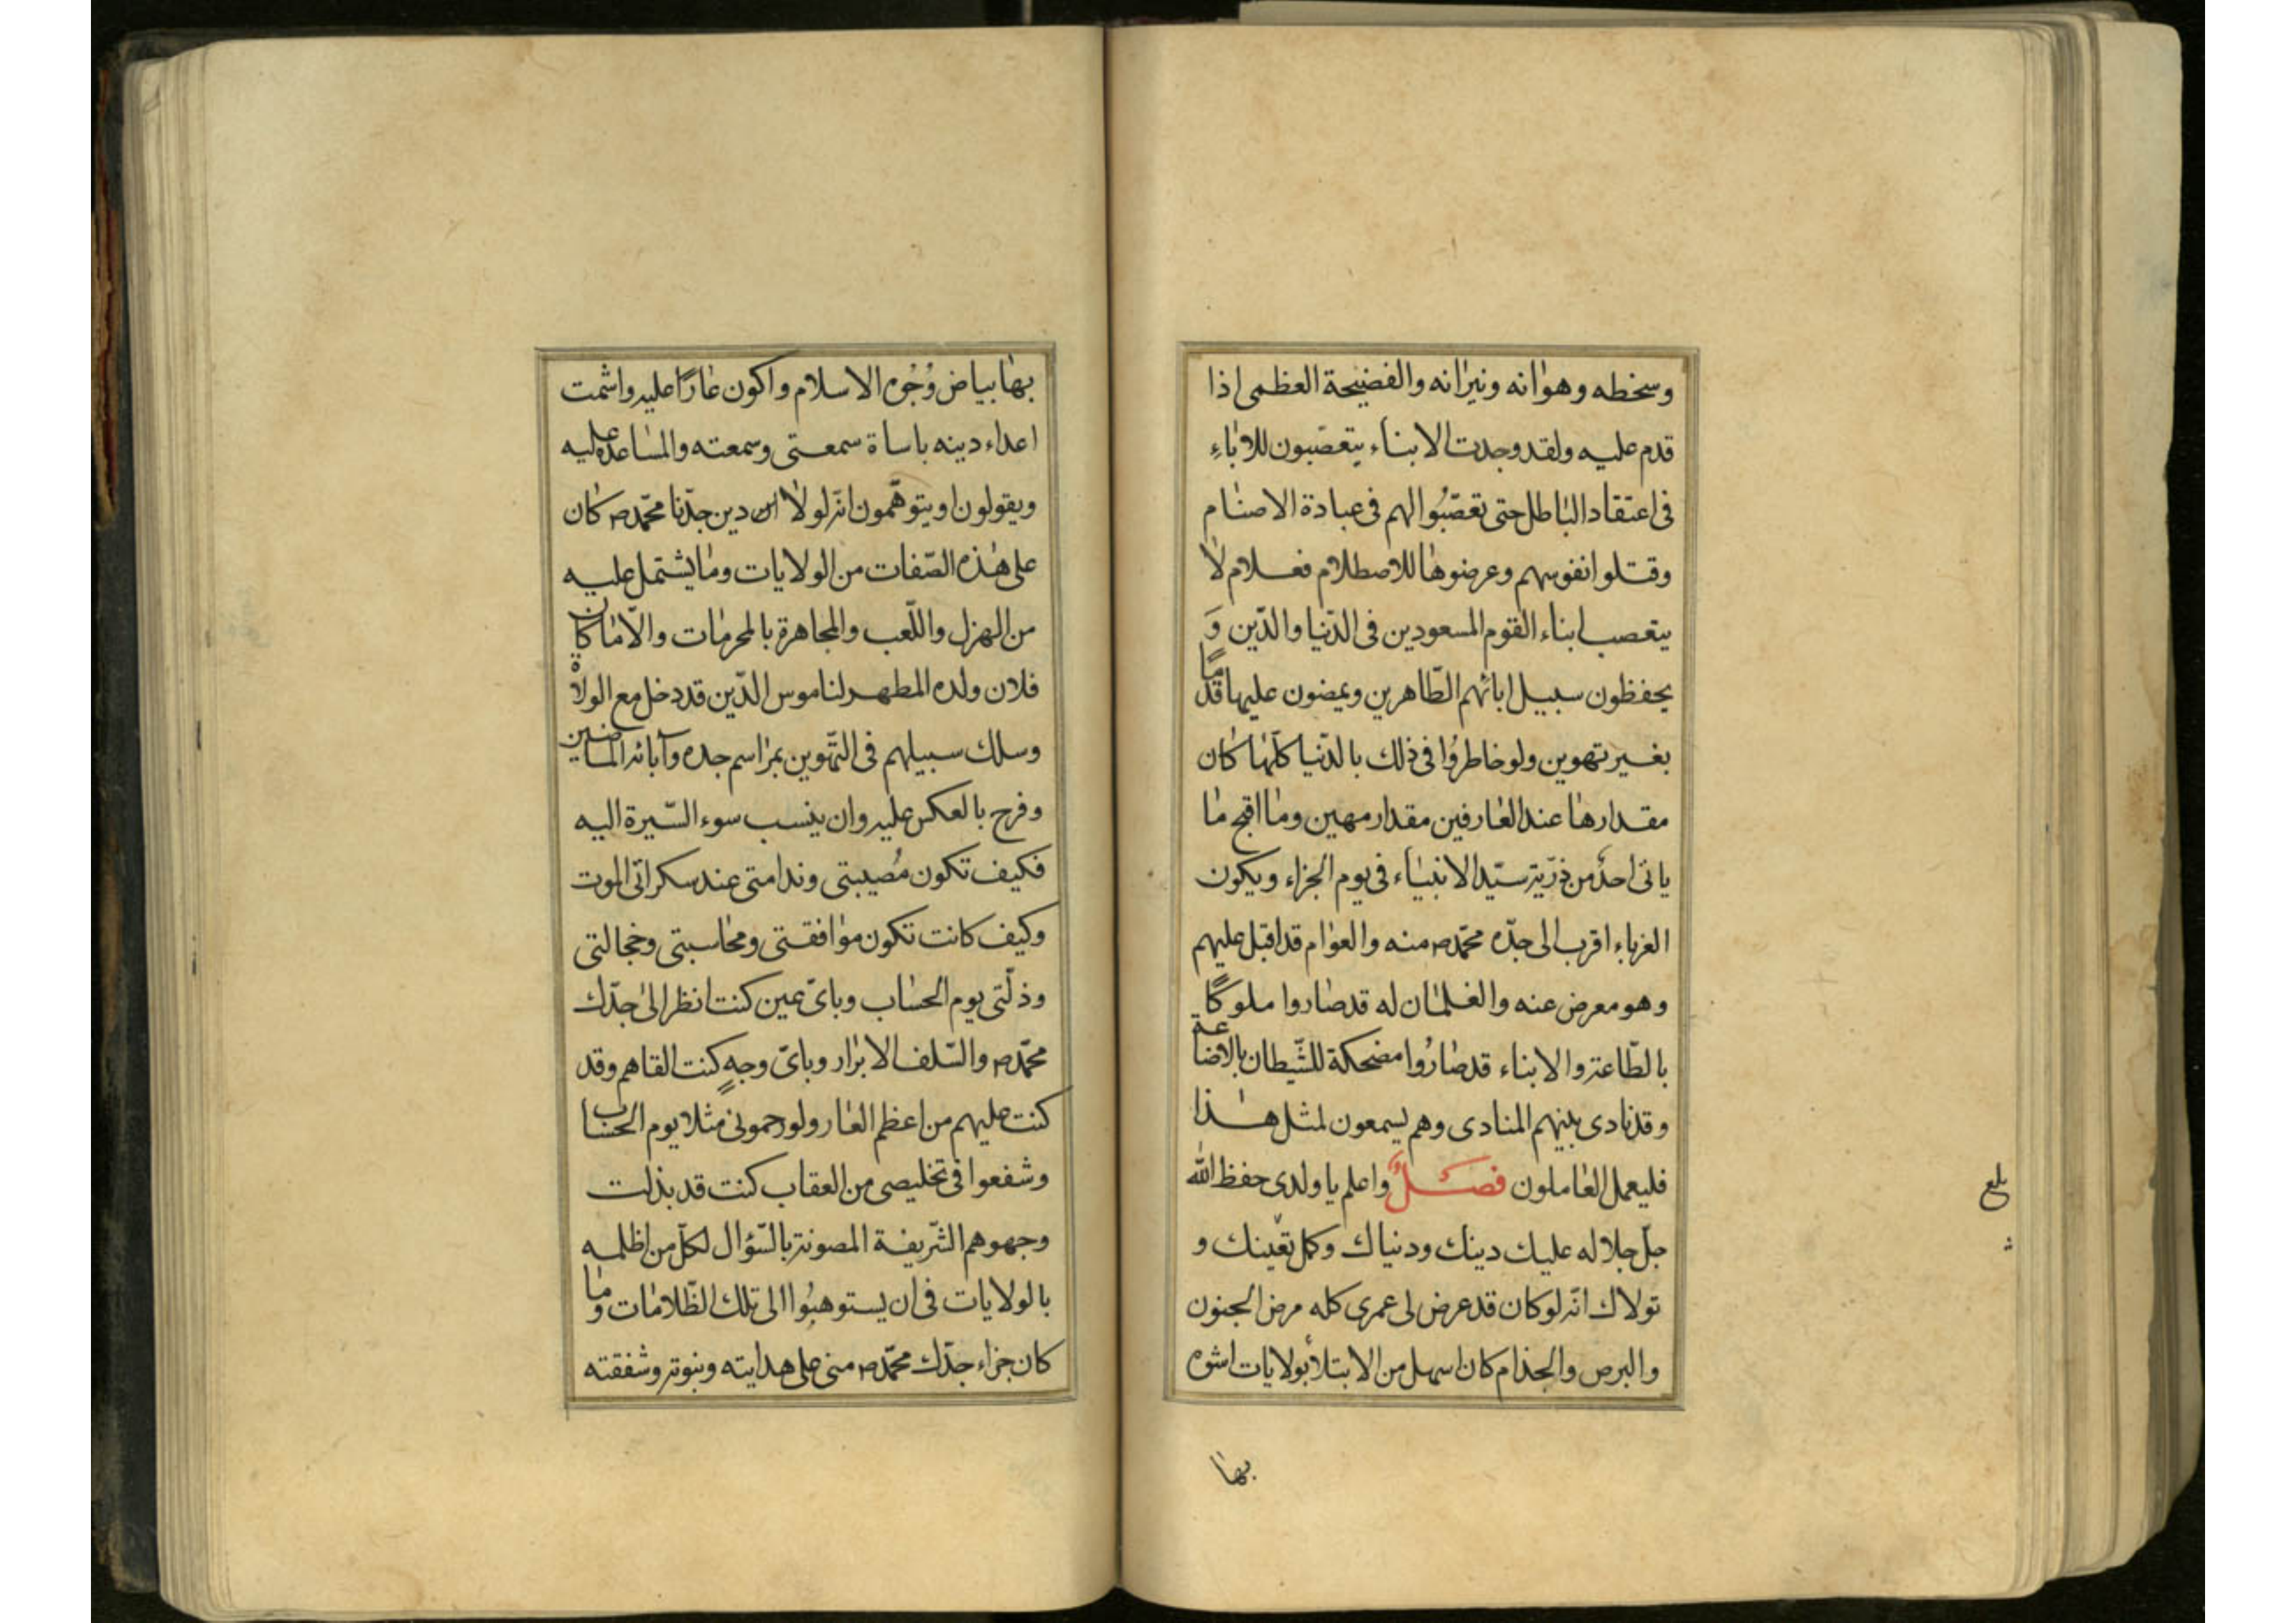 وسخطه وهوانه ونيرانه والفضيحة العظمى اذا
قدم عليه ولقد وجدت الابناء يتعصّبون للاباءِ
فى اعتقاد الباطل حتى تعصّبُوا لهم فى عبادة الاصنام
وقتلوا انفوسهم وعرضوها للاصطلام فعلام لا
يتعصب ابناء القوم المسعودين فى الدّنيا والدّين وَ
يحفظون سبيل ابائهم الطّاهرين ويمضون عليها قدمًا
بغير تهوين ولو خاطرُوا فى ذلك بالدّنيا كلّها كان
مقدارها عند العارفين مقدار مهين وما اقبح ما
ياتى احدٌ من ذرّية سيّد الانبياء فى يوم الجزاء ويكون
الغرباء اقرب الى جدّه محمّد ص منه والعوام قد اقبل عليهم
وهو معرض عنه والغلمان له قد صاروا ملوكًا
بالطّاعة والابناء قد صارُوا مضحكة للشّيطان بالاضاعة
وقد نادى بينهم المنادى وهم يسمعون لمثل هذا
فليعمل العاملون فصلٌ واعلم يا ولدى حفظ الله
جلّ جلاله عليك دينك ودنياك وكمل تقينك و
تولاك انّه لو كان قد عرض لى عمرى كله مرض الجنون
والبرص والجذام كان اسهل من الابتلاء بولايات اشوه
بها
بلغ
بها بياض وُجُوه الاسلام واكون عارًا عليه واشمت
اعداء دينه باساة سمعتى وسمعته والمساعده عليه
ويقولون او يتوهّمون انّه لولا ان دين جدّنا محمّد ص كان
على هذه الصّفات من الولايات وما يشتمل عليه
من الهزل واللّعب والمجاهرة بالمحرمات والّا ما كان
فلان ولده المطهر لناموس الدّين قد دخل مع الولاة
وسلك سبيلهم فى التّهوين بمراسم جده وآبائه الماضين
وفرح بالعكس عليه وان ينسب سوء السّيرة اليه
فكيف تكون مُصيبتى وندامتى عند سكراتى الموت
وكيف كانت تكون موافقتى ومحاسبتى وخجالتى
وذلّتى يوم الحساب وباىّ عين كنت انظر الى جدّك
محمّد ص والسّلف الابرار وباىّ وجهٍ كنت القاهم وقد
كنت عليهم من اعظم العار ولو رحمونى مثلا يوم الحساب
وشفعوا فى تخليصى من العقاب كنت قد بذلت
وجهوهم الشّريفة المصونة بالسّؤال لكلّ من اظلمه
بالولايات فى ان يستوهبُوا الى تلك الظّلامات وما
كان جزاء جدّك محمّد ص منى على هدايته ونبوته وشفقته